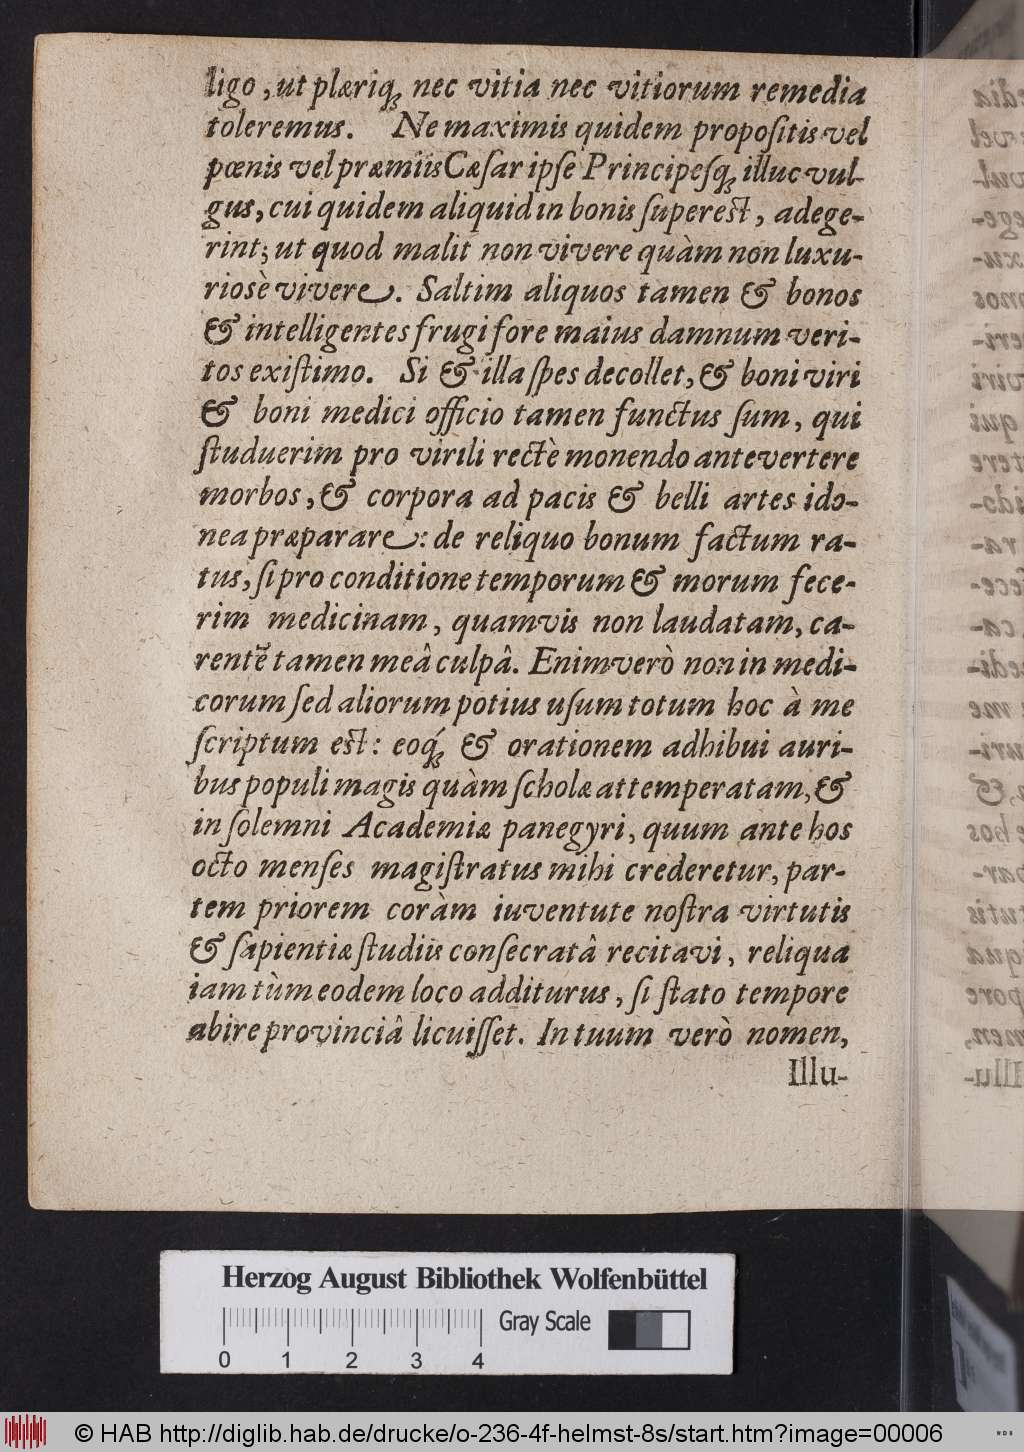 ligo, ut plæriq́ꝫ nec vitia nec vitiorum remedia
toleremus. Ne maximis quidem propositis vel
pœnis vel præmiis Cæſar ipſe Principesqꝫ illuc vul-
gus, cui quidem aliquid in bonis ſupereſt, adege-
rint; ut quod malit non vivere quàm non luxu-
riosè vivere. Saltim aliquos tamen & bonos
& intelligentes frugi fore maius damnum veri-
tos exiſtimo. Si & illa ſpes decollet, & boni viri
& boni medici officio tamen functus ſum, qui
ſtuduerim pro virili rectè monendo antevertere
morbos, & corpora ad pacis & belli artes ido-
nea præparare: de reliquo bonum factum ra-
tus, ſi pro conditione temporum & morum fece-
rim medicinam, quamvis non laudatam, ca-
rentẽ tamen meâ culpâ. Enimverò non in medi-
corum ſed aliorum potius uſum totum hoc à me
ſcriptum eſt: eoq́ꝫ & orationem adhibui auri-
bus populi magis quàm ſcholæ attemperatam, &
in ſolemni Academiæ panegyri, quum ante hos
octo menſes magiſtratus mihi crederetur, par-
tem priorem coràm iuventute noſtra virtutis
& ſapientiæ ſtudiis conſecratâ recitavi, reliqua
iam tùm eodem loco additurus, ſi ſtato tempore
abire provinciâ licuiſſet. In tuum verò nomen,
Illu-
Herzog August Bibliothek Wolfenbüttel
Gray Scale
0 1 2 3 4
© HAB http://diglib.hab.de/drucke/o-236-4f-helmst-8s/start.htm?image=00006